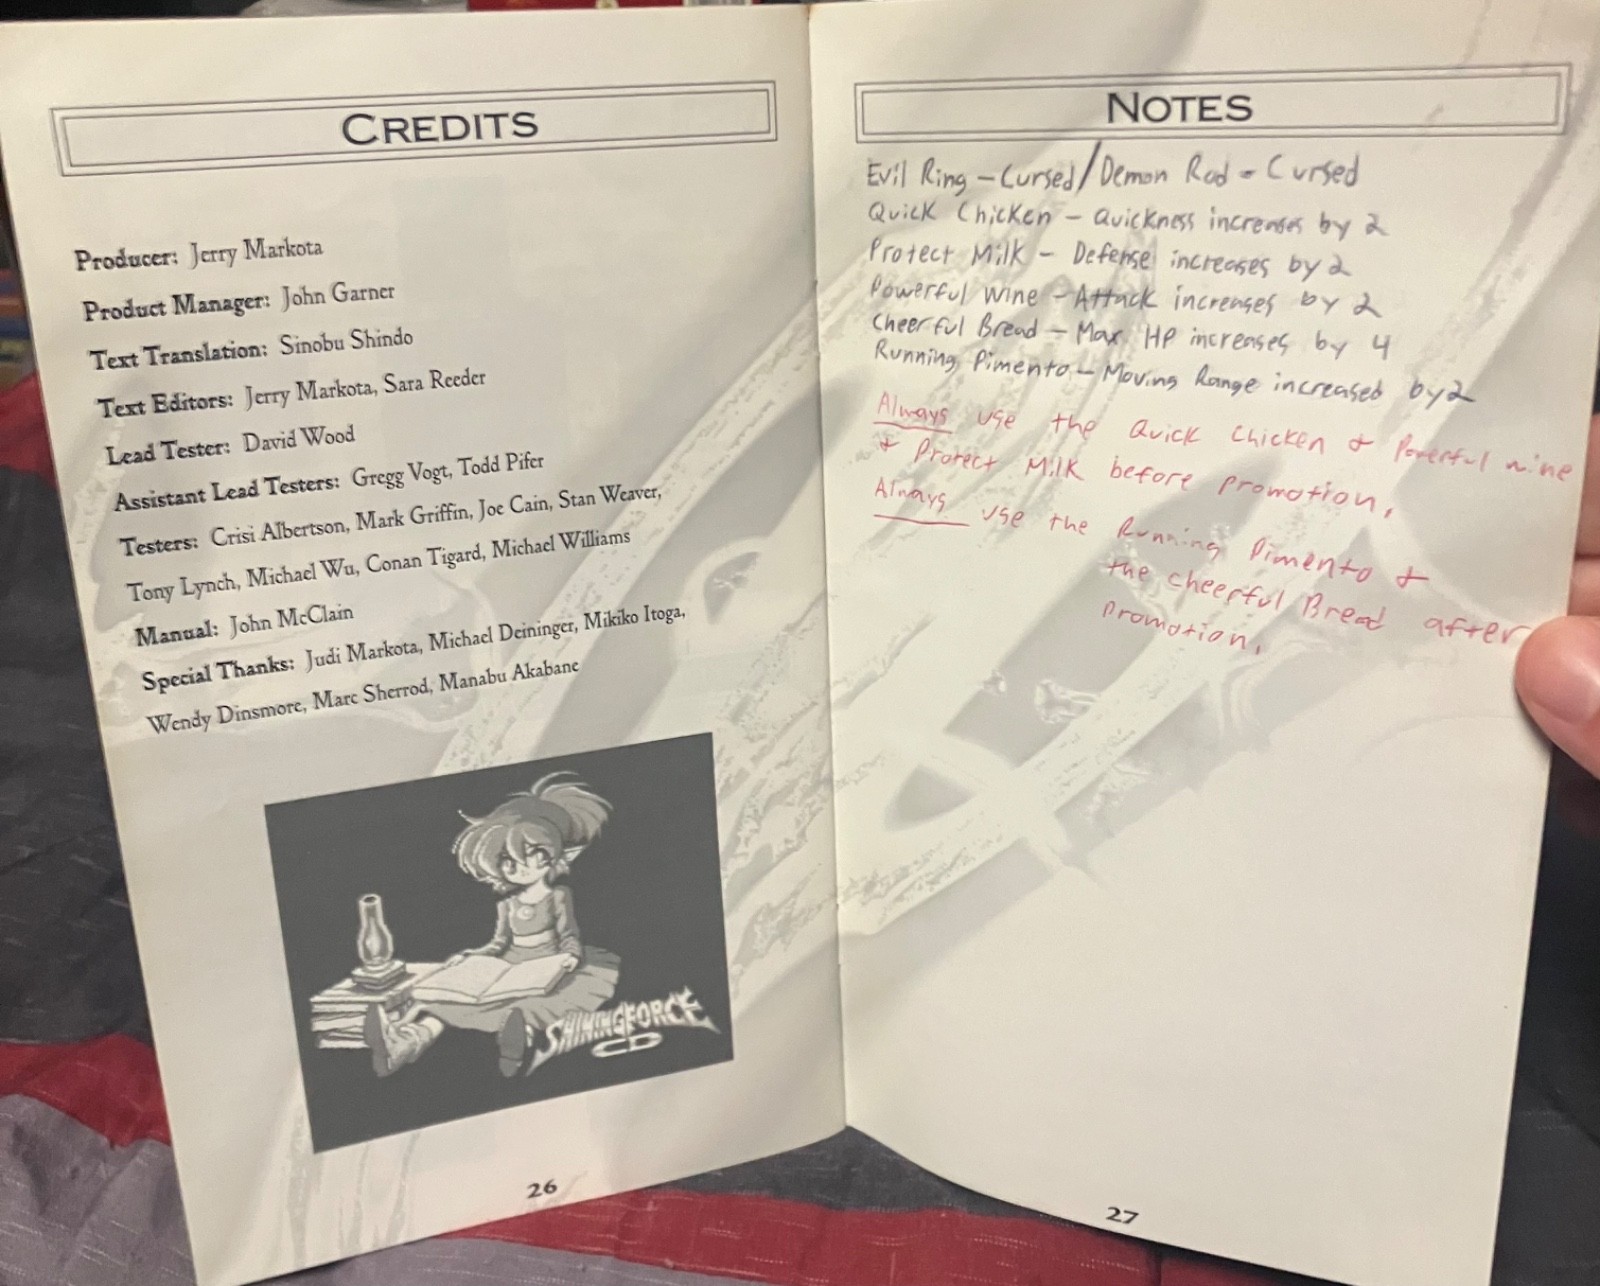 CREDITS
Producer: Jerry Markota
Product Manager: John Garner
Text Translation: Sinobu Shindo
Text Editors: Jerry Markota, Sara Reeder
Lead Tester: David Wood
Assistant Lead Testers: Gregg Vogt, Todd Pifer
Testers: Crisi Albertson, Mark Griffin, Joe Cain, Stan Weaver,
Tony Lynch, Michael Wu, Conan Tigard, Michael Williams
Manual: John McClain
Special Thanks: Judi Markota, Michael Deininger, Mikiko Itoga,
Wendy Dinsmore, Marc Sherrod, Manabu Akabane
SHINING FORCE
CD
26
NOTES
Evil Ring - Cursed / Demon Rod - Cursed
Quick Chicken - Quickness increases by 2
Protect Milk - Defense increases by 2
Powerful Wine - Attack increases by 2
Cheerful Bread - Max HP increases by 4
Running Pimento - Moving Range increased by 2
Always use the Quick Chicken & Powerful wine
& Protect Milk before promotion.
Always use the Running Pimento &
the Cheerful Bread after
promotion.
27